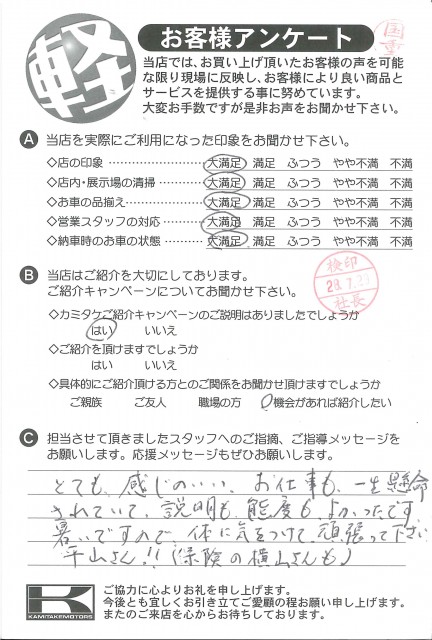 軽
お客様アンケート
国重
当店では、お買い上げ頂いたお客様の声を可能
な限り現場に反映し、お客様により良い商品と
サービスを提供する事に努めています。
大変お手数ですが是非お声をお聞かせ下さい。
A 当店を実際にご利用になった印象をお聞かせ下さい。
◇店の印象 ………………… 大満足 満足 ふつう やや不満 不満
◇店内・展示場の清掃 ……… 大満足 満足 ふつう やや不満 不満
◇お車の品揃え ……………… 大満足 満足 ふつう やや不満 不満
◇営業スタッフの対応 ……… 大満足 満足 ふつう やや不満 不満
◇納車時のお車の状態 ……… 大満足 満足 ふつう やや不満 不満
B 当店はご紹介を大切にしております。
ご紹介キャンペーンについてお聞かせ下さい。
検印
社長
◇カミタケご紹介キャンペーンのご説明はありましたでしょうか
はい いいえ
◇ご紹介を頂けますでしょうか
はい いいえ
◇具体的にご紹介頂ける方とのご関係をお聞かせ頂けますでしょうか
ご親族 ご友人 職場の方 機会があれば紹介したい
C 担当させて頂きましたスタッフへのご指摘、ご指導メッセージを
お願いします。応援メッセージもぜひお願いします。
とても、感じのいい、お仕事も、一生懸命
されていて、説明も、態度も、よかったです
暑いですので、体に気をつけて、頑張って下さい
平山さん!!(保険の横山さんも)
K
KAMITAKEMOTORS
ご協力に心よりお礼を申し上げます。
今後とも宜しくお引き立てご愛顧の程お願い申し上げます。
またのご来店を心からお待ちしております。